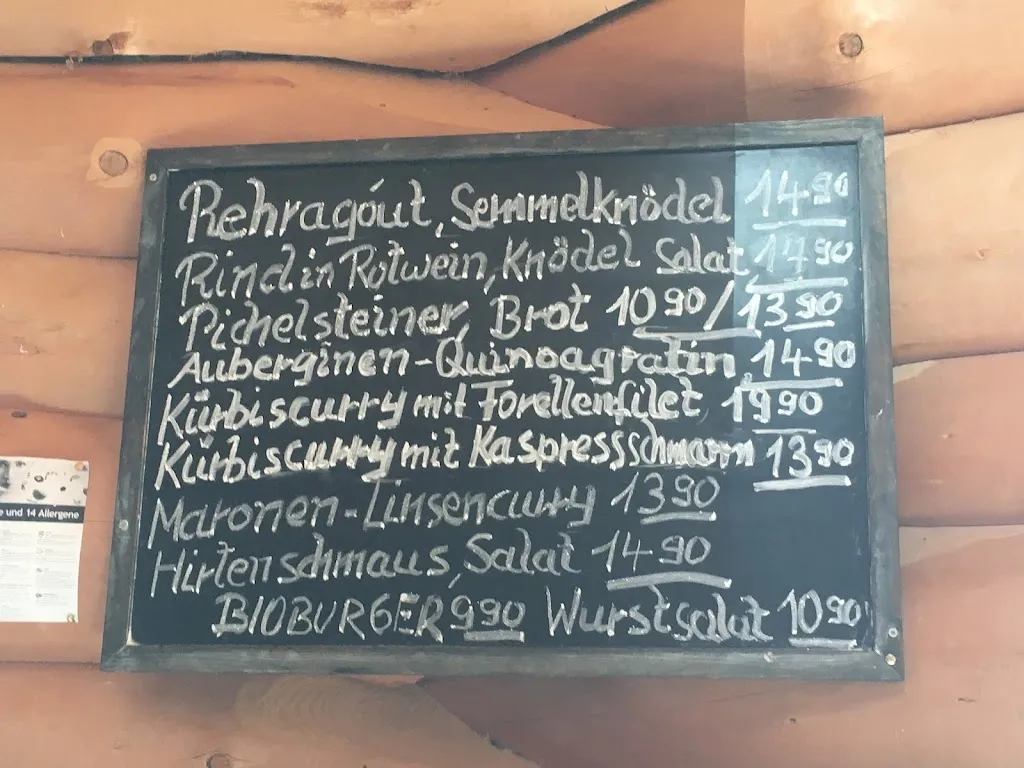 Rehragout, Semmelknödel 14 90
Rind in Rotwein, Knödel Salat 14 90
Pichelsteiner, Brot 10 90 / 13 90
Auberginen-Quinoagratin 14 90
Kürbiscurry mit Forellenfilet 19 90
Kürbiscurry mit Kaspressschmarrn 13 90
Maronen-Linsencurry 13 90
Hirtenschmaus, Salat 14 90
BIOBURGER 9 90 Wurstsalat 10 90
e und 14 Allergene